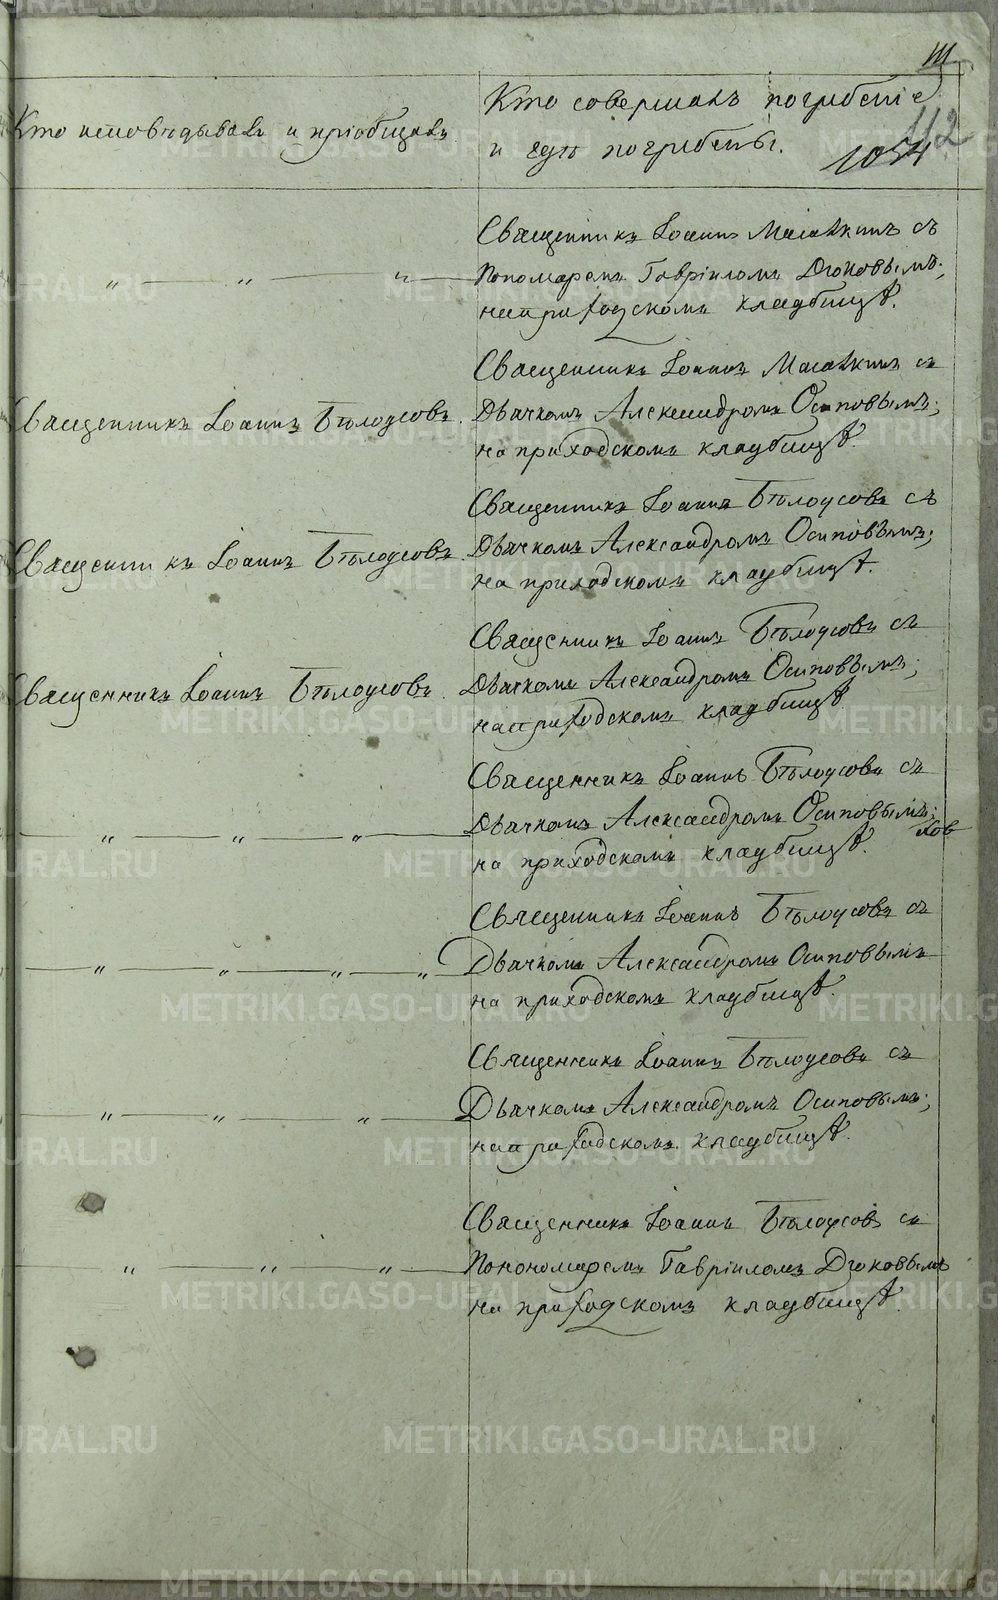 111
112
1054
Кто исповѣдывалъ и пріобщалъ.
Кто совершалъ погребеніе
и гдѣ погребены.
Священникъ Іоаннъ Масалкинъ съ
Пономаремъ Гавріиломъ Дюковымъ;
на приходскомъ кладбищѣ.
Священникъ Іоаннъ Бѣлоусовъ.
Священникъ Іоаннъ Масалкинъ съ
Дьячкомъ Александромъ Осиповымъ;
на приходскомъ кладбищѣ.
Священникъ Іоаннъ Бѣлоусовъ.
Священникъ Іоаннъ Бѣлоусовъ съ
Дьячкомъ Александромъ Осиповымъ;
на приходскомъ кладбищѣ.
Священникъ Іоаннъ Бѣлоусовъ.
Священникъ Іоаннъ Бѣлоусовъ съ
Дьячкомъ Александромъ Осиповымъ;
на приходскомъ кладбищѣ
Священникъ Іоаннъ Бѣлоусовъ съ
Дьячкомъ Александромъ Осиповымъ;
на приходскомъ кладбищѣ.
Священникъ Іоаннъ Бѣлоусовъ съ
Дьячкомъ Александромъ Осиповымъ
на приходскомъ кладбищѣ.
Священникъ Іоаннъ Бѣлоусовъ съ
Дьячкомъ Александромъ Осиповымъ;
на приходскомъ кладбищѣ.
Священникъ Іоаннъ Бѣлоусовъ съ
Пономаремъ Гавріиломъ Дюковымъ
на приходскомъ кладбищѣ.
METRIKI.GASO-URAL.RU